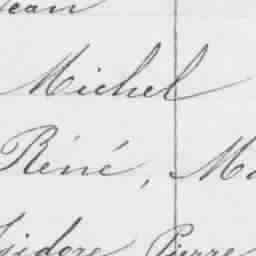 Jean
Michel
Réné, Ma
Isidore Pierre